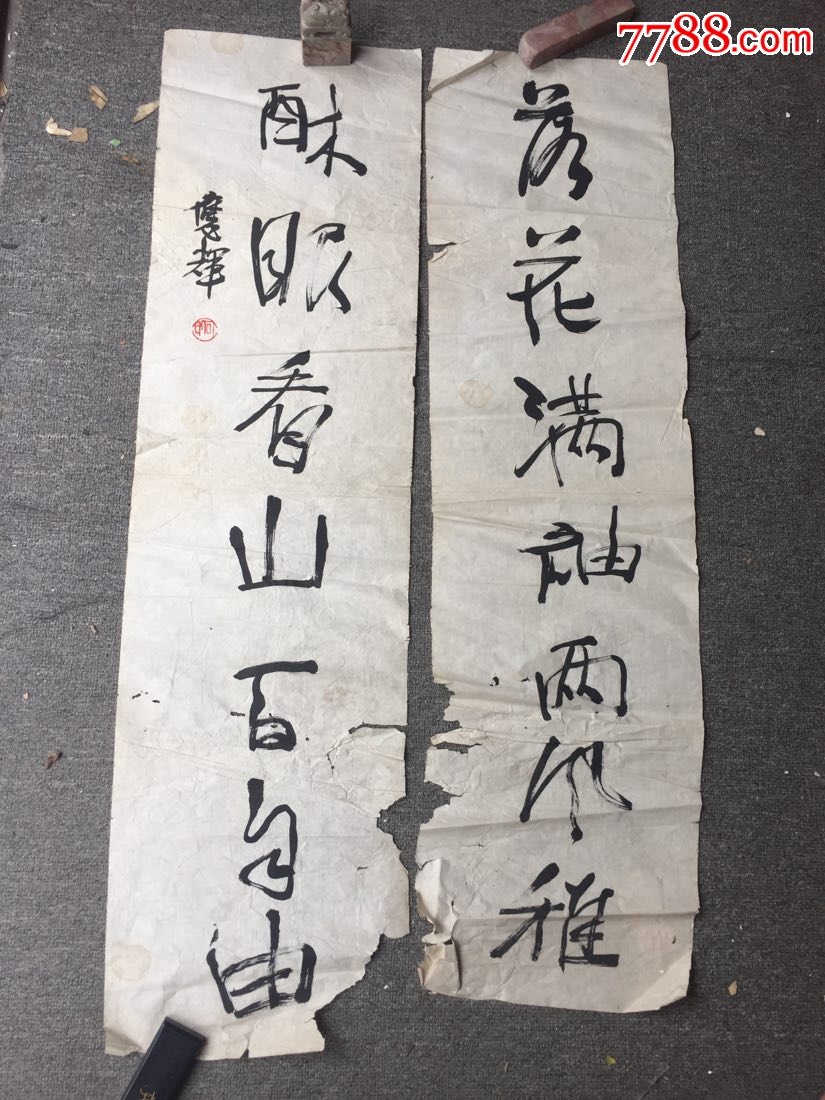 7788.com
落花满袖两风雅
醉眼看山百自由
輝